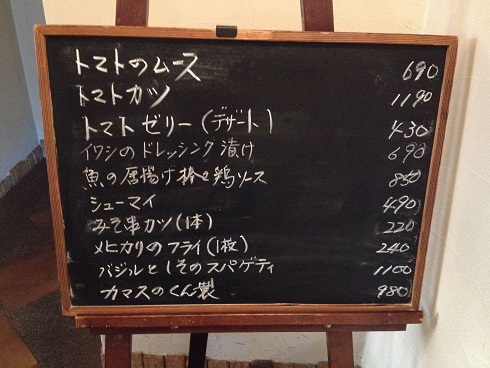 トマトのムース 690
トマトカツ 1190
トマトゼリー(デザート) 430
イワシのドレッシング漬け 690
魚の唐揚げ 鶏ソース 850
シューマイ 490
みそ串カツ(1本) 220
メヒカリのフライ(1枚) 240
バジルとしそのスパゲティ 1100
カマスのくん製 980